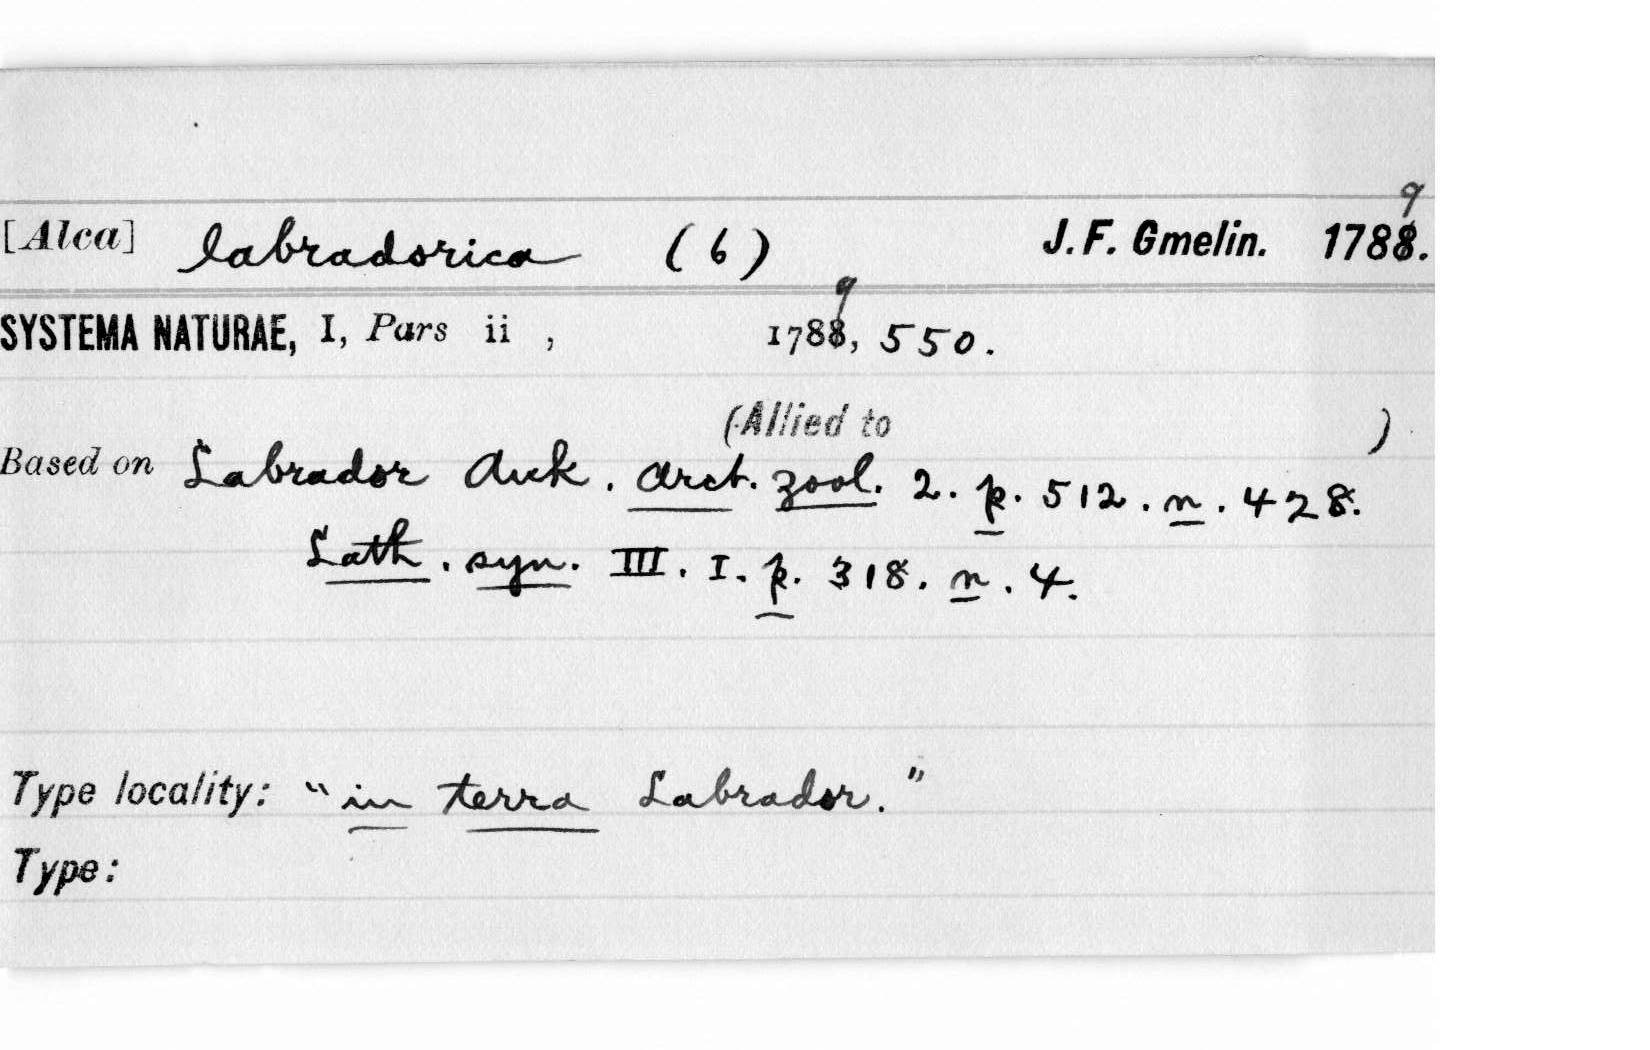 [Alca] labradorica (6) J. F. Gmelin. 1789.
SYSTEMA NATURAE, I, Pars ii , 1789, 550.
(Allied to )
Based on Labrador Auk. Arct. Zool. 2. p. 512. n. 428.
Lath. syn. III. I. p. 318. n. 4.
Type locality: "in terra Labrador."
Type: